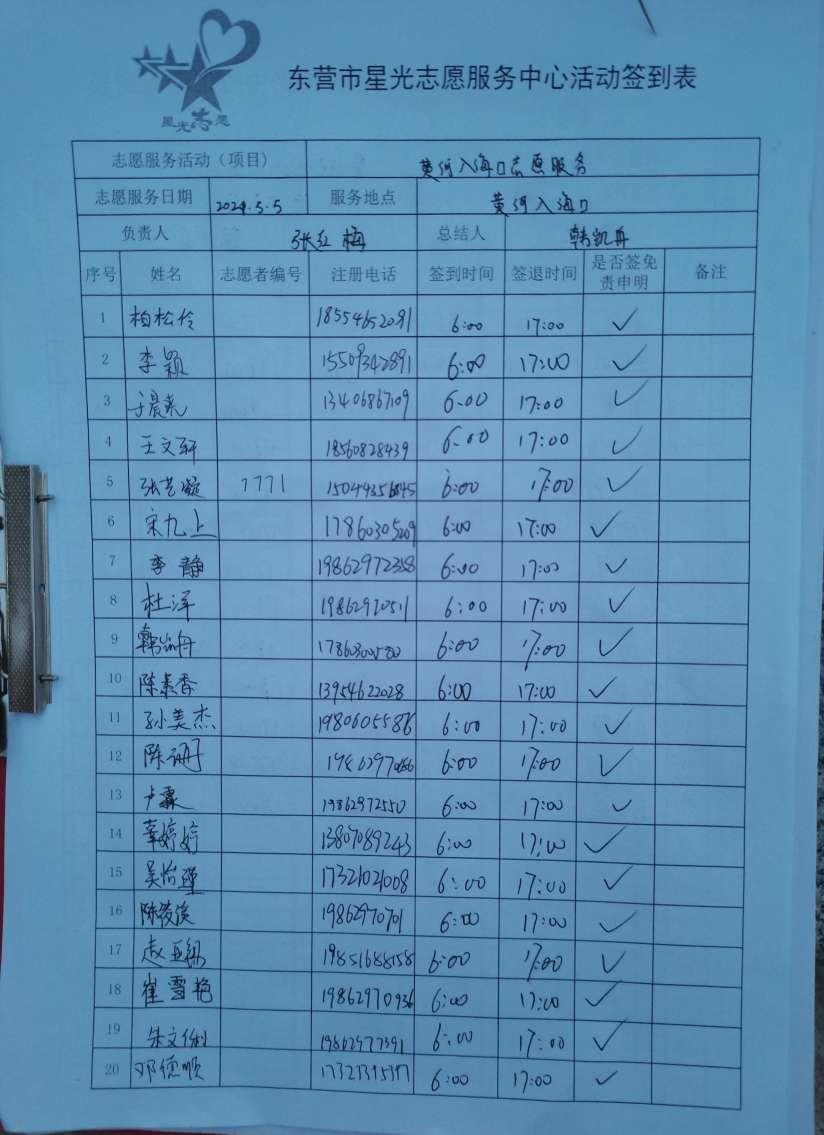 星光志愿
东营市星光志愿服务中心活动签到表
志愿服务活动（项目） 黄河入海口志愿服务
志愿服务日期 2024.5.5 服务地点 黄河入海口
负责人 张红梅 总结人 韩凯丹
序号 姓名 志愿者编号 注册电话 签到时间 签退时间 是否签免责申明 备注
1 柏松伶 18554652091 6:00 17:00 ✓
2 李颖 15509342891 6:00 17:00 ✓
3 于晨尧 13406867109 6:00 17:00 ✓
4 王文轩 18560828439 6:00 17:00 ✓
5 张艺凝 7771 6:00 17:00 ✓
6 宋九上 17860305209 6:00 17:00 ✓
7 李静 19862972358 6:00 17:00 ✓
8 杜泽 19862970511 6:00 17:00 ✓
9 韩凯丹 6:00 17:00 ✓
10 陈素香 13954622028 6:00 17:00 ✓
11 孙美杰 19806055876 6:00 17:00 ✓
12 6:00 17:00 ✓
13 卢霖 19862972550 6:00 17:00 ✓
14 辜婷婷 13807089243 6:00 17:00 ✓
15 17321021008 6:00 17:00 ✓
16 19862970701 6:00 17:00 ✓
17 19851688158 6:00 17:00 ✓
18 崔雪艳 19862970936 6:00 17:00 ✓
19 19862977391 6:00 17:00 ✓
20 邓德顺 6:00 17:00 ✓